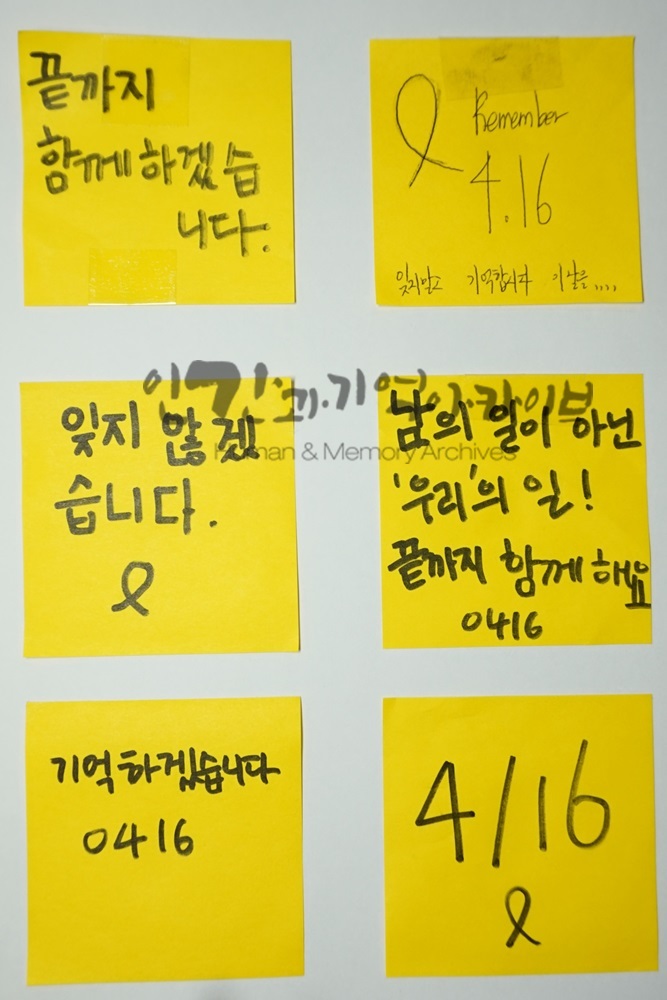 끝까지
함께하겠습
니다.
Remember
4.16
잊지말고 기억합시다 이 날을....
인간과기억아카이브
Human & Memory Archives
잊지 않겠
습니다.
남의 일이 아닌
'우리'의 일!
끝까지 함께해요
0416
기억하겠습니다
0416
4/16